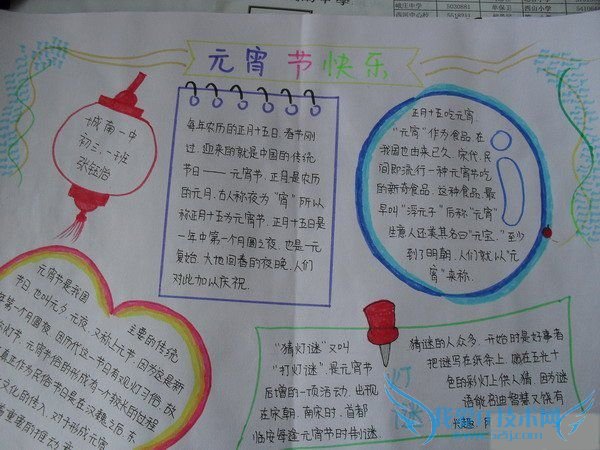 岷庄中学 5030881 单保卫 西山小学
5518231 5410
元宵节快乐
城南一中
初三·一班
张钰治
每年农历的正月十五日,春节刚
过,迎来的就是中国的传统
节日——元宵节.正月是农历
的元月,古人称夜为“宵”所以
称正月十五为元宵节.正月十五日是
一年中第一个月圆之夜,也是一元
复始,大地回春的夜晚,人们
对此加以庆祝.
正月十五吃元宵
“元宵”作为食品,在
我国也由来已久,宋代,民
间即流行一种元宵节吃
的新奇食品.这种食品,最
早叫“浮元子”后称“元宵”
生意人还美其名曰“元宝.”至少
到了明朝,人们就以“元
宵”来称.
元宵节是我国 主要的传统
节日,也叫元夕,元夜,又称上元节,因为这是新
年第一个月圆夜.因历代这一节日有观灯习俗,故
称灯节.元宵节俗的形成有一个较长的过程
真正作为民俗节日是在汉魏之后.东
文化的传入,对于形成元宵
有重要的推动
“猜灯谜”又叫
“打灯谜”是元宵节
后增的一项活动,出现
在宋朝.南宋时,首都
临安每逢元宵节时制谜,
灯
谜
猜谜的人众多.开始时是好事者
把谜写在纸条上,贴在五光十
色的彩灯上供人猜.因为谜
语能启迪智慧又饶有